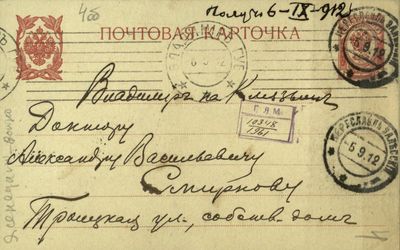 4об
Получ. 6-IX-912
ПОЧТОВАЯ КАРТОЧКА
ПЕРЕСЛАВЛЬ ЗАЛѢССКІЙ
5.9.12
Владиміръ на Клязьмѣ
Г Л М
10348
1961
Доктору
Александру Васильевичу
ПЕРЕСЛАВЛЬ ЗАЛѢССКІЙ
-5.9.12
Смирнову
Троицкая ул., собств. домъ